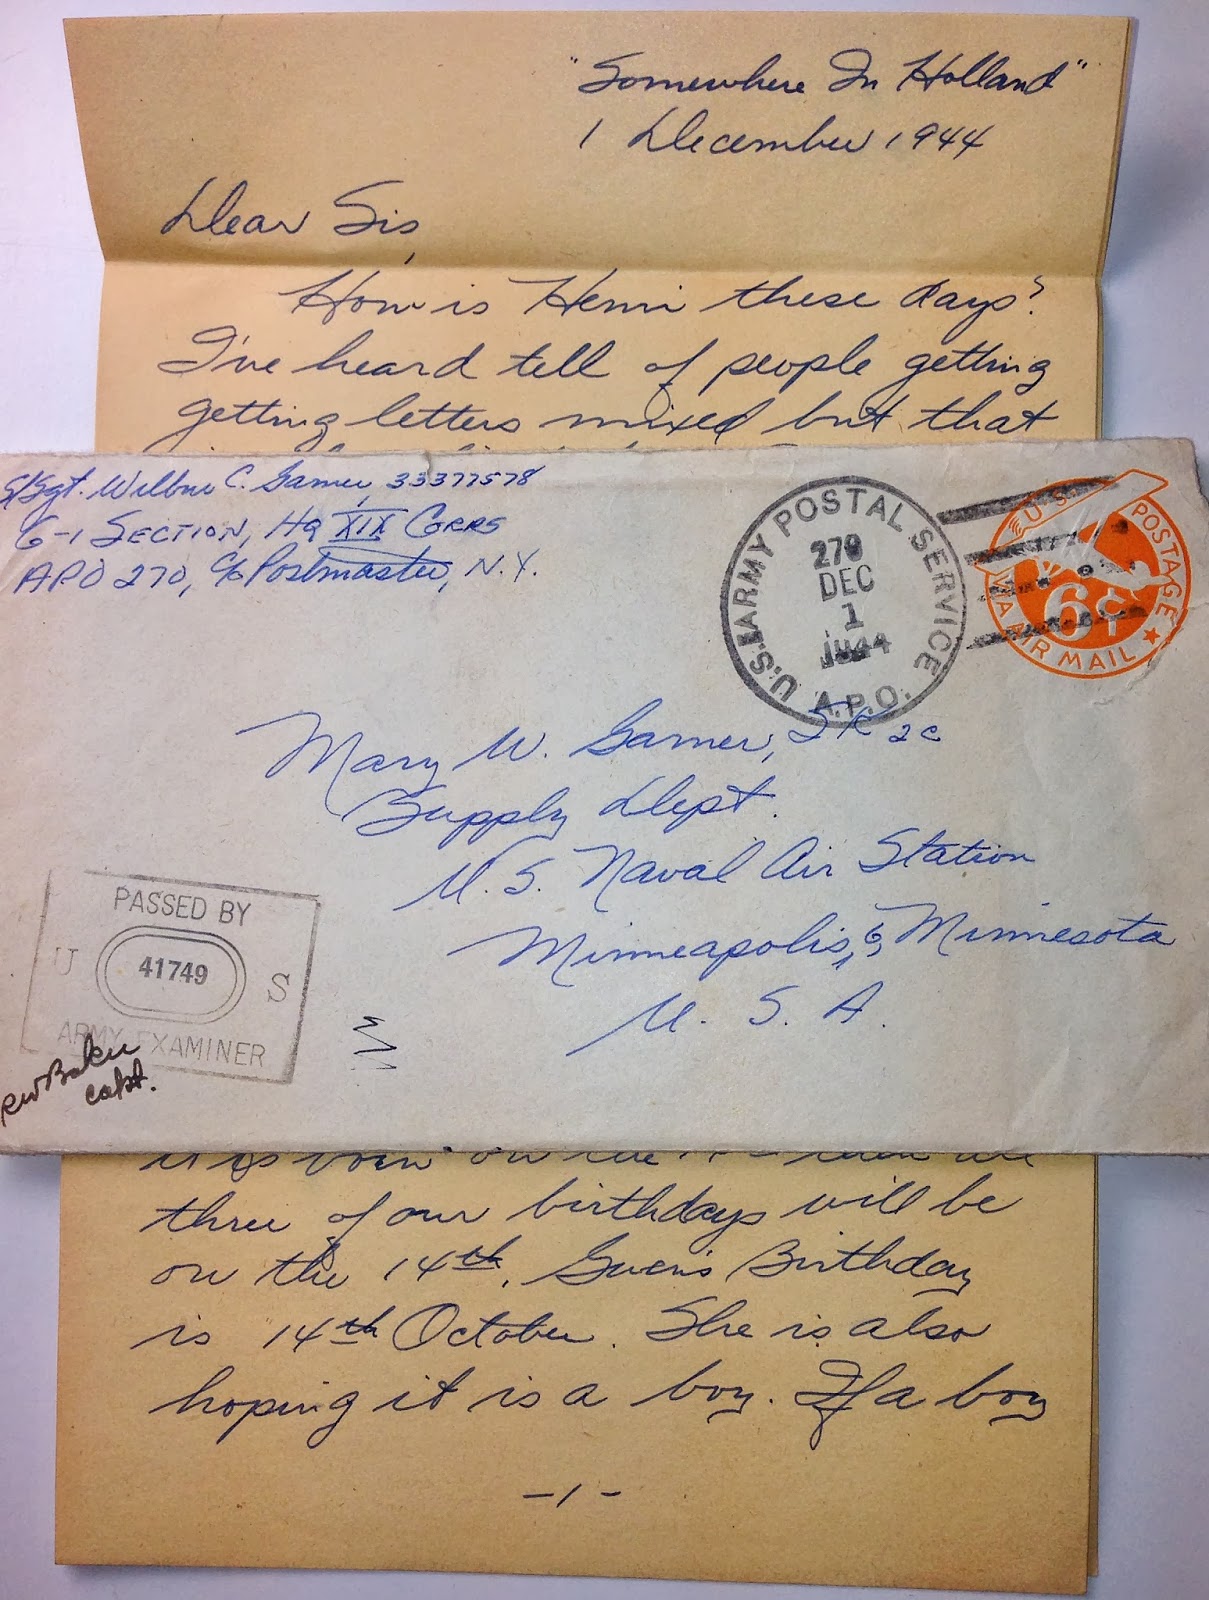 "Somewhere In Holland"
1 December 1944
Dear Sis,
How is Hemi these days?
I've heard tell of people getting
getting letters mixed but that
S/Sgt. Wilbur C. Garner, 33377578
G-1 SECTION, HQ XIX CORPS
APO 270, c/o Postmaster, N.Y.
U.S. ARMY POSTAL SERVICE
A.P.O.
270
DEC
1
1944
U.S. POSTAGE
6¢
VIA AIR MAIL
Mary W. Garner, SK 2c
Supply Dept.
U. S. Naval Air Station
Minneapolis, 6, Minnesota
U. S. A.
PASSED BY
U 41749 S
ARMY EXAMINER
RW Baker
Capt.
three of our birthdays will be
on the 14th. Gwen's Birthday
is 14th October. She is also
hoping it is a boy. If a boy
-1-